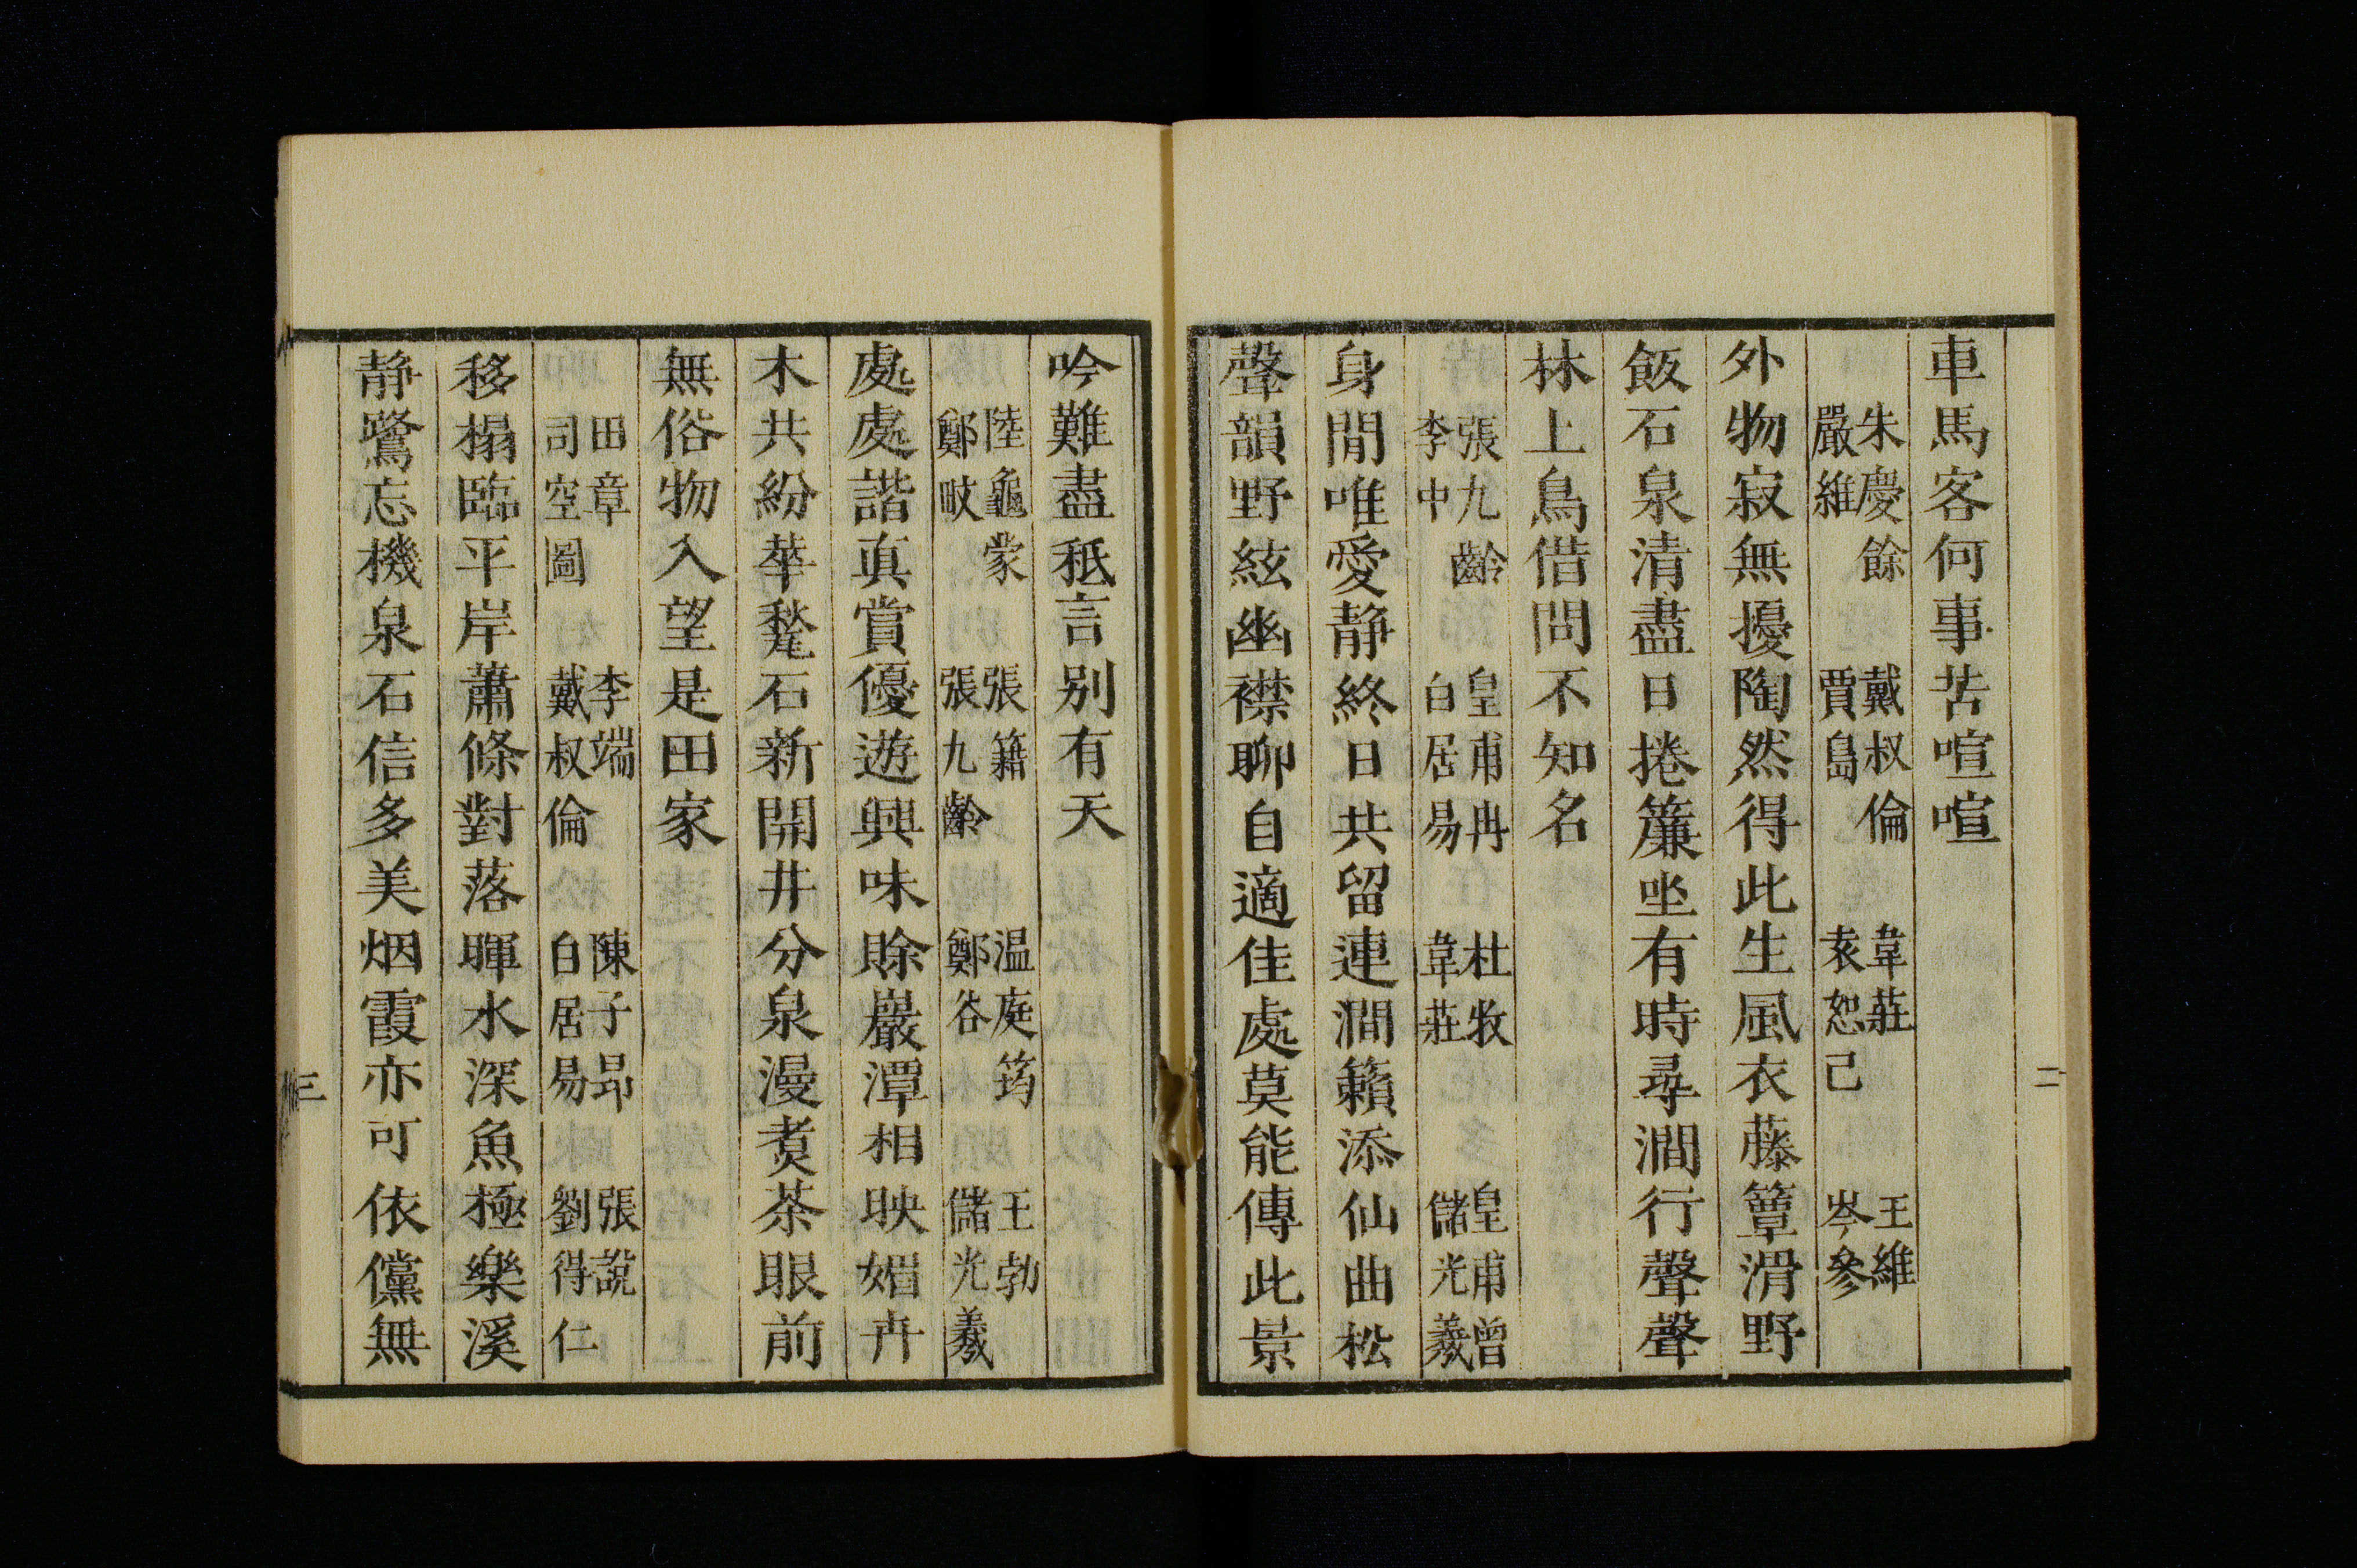 車馬客何事苦喧喧
朱慶餘 戴叔倫 韋莊 王維
嚴維 賈島 袁恕己 岑參
外物寂無擾陶然得此生風衣藤簟滑野
飯石泉清盡日捲簾坐有時尋澗行聲聲
林上鳥借問不知名
張九齡 皇甫冉 杜牧 皇甫曾
李中 白居易 韋莊 儲光羲
身閒唯愛静終日共留連澗籟添仙曲松
聲韻野絃幽襟聊自適佳處莫能傳此景
二
吟難盡秖言别有天
陸龜蒙 張籍 温庭筠 王勃
鄭畋 張九齡 鄭谷 儲光羲
處處諧真賞優遊興味賒巖潭相映媚卉
木共紛華甃石新開井分泉漫煑茶眼前
無俗物入望是田家
田章 李端 陳子昂 張說
司空圖 戴叔倫 白居易 劉得仁
移榻臨平岸蕭條對落暉水深魚極樂溪
静鷺忘機泉石信多美烟霞亦可依儻無
三